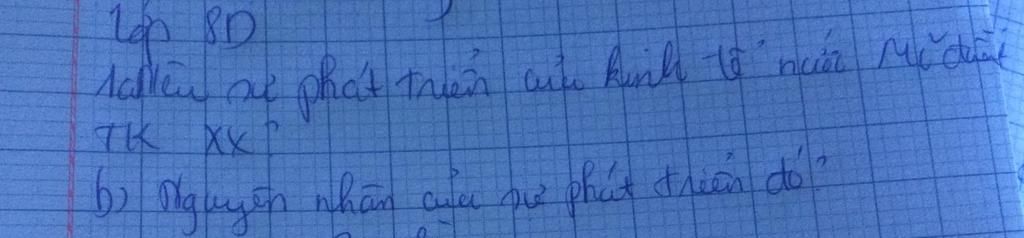 Lớp 8D
1a) Nêu sự phát triển của kinh tế nước Mĩ đầu
TK XX?
b) Nguyên nhân của sự phát triển đó?